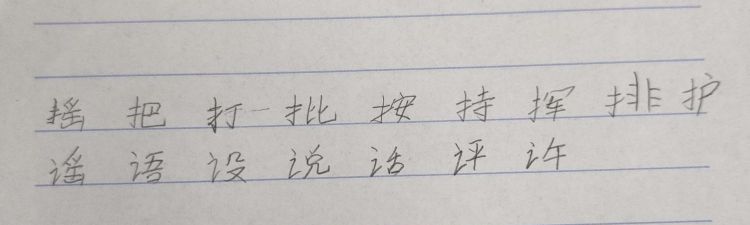 摇 把 打 批 按 持 挥 排 护
谣 语 设 说 话 评 许